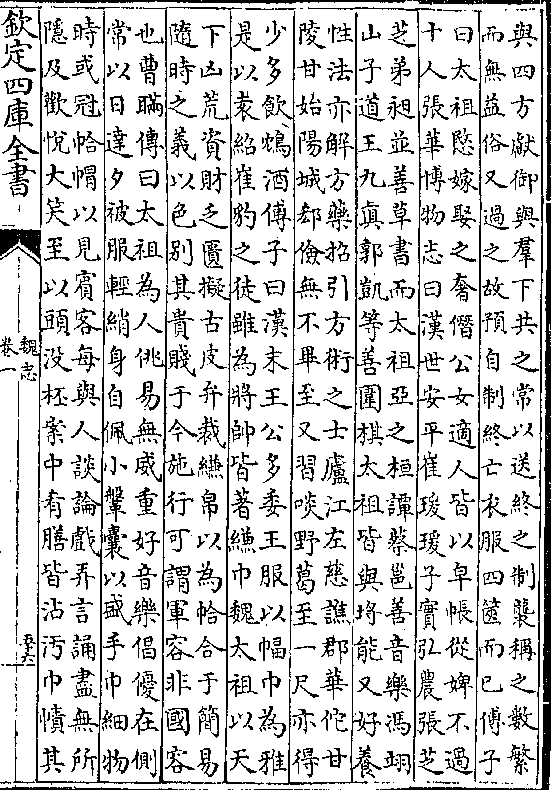 與四方獻御與羣下共之常以送終之制襲稱之數繁
而無益俗又過之故預自制終亡衣服四篋而已傅子
曰太祖愍嫁娶之奢僭公女適人皆以皁帳從婢不過
十人張華博物志曰漢世安平崔瑗瑗子實弘農張芝
芝弟昶並善草書而太祖亞之桓譚蔡邕善音樂馮翊
山子道王九真郭凱等善圍棋太祖皆與埒能又好養
性法亦解方藥招引方術之士廬江左慈譙郡華佗甘
陵甘始陽城郄儉無不畢至又習啖野葛至一尺亦得
少多飲鴆酒傅子曰漢末王公多委王服以幅巾為雅
是以袁紹崔豹之徒雖為將帥皆著縑巾魏太祖以天
下凶荒資財乏匱擬古皮弁裁縑帛以為帢合于簡易
隨時之義以色別其貴賤于今施行可謂軍容非國容
也曹瞞傳曰太祖為人佻易無威重好音樂倡優在側
常以日達夕被服輕綃身自佩小鞶囊以盛手巾細物
時或冠帢帽以見賓客每與人談論戲弄言誦盡無所
隱及歡悅大笑至以頭沒柸案中肴膳皆沾汚巾幘其
欽定四庫全書
魏志
卷一
五十六